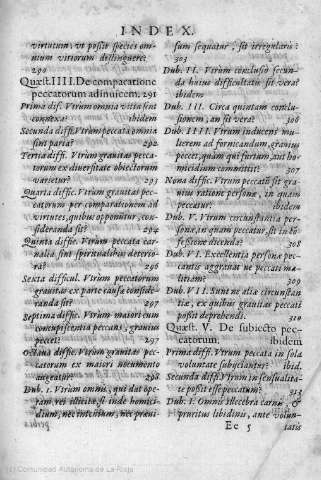 INDEX.
virtutum, vt possit species om-
nium vitiorum distinguere?
290
Quæst. IIII. De comparatione
peccatorum adinuicem. 291
Prima dif. Vtrum omnia vitia sint
connexa? ibidem
Secunda diffi. Vtrum peccata omnia
sint paria? 292
Tertia diffi. Vtrum grauitas pecca-
torum ex diuersitate obiectorum
varietur? 293
Quarta diffic. Vtrum grauitas pec-
catorum per comparationem ad
virtutes, quibus opponũtur, con-
sideranda sit? 294
Quinta diffic. Vtrum peccata car-
nalia sint spiritualibus deterio-
ra? 296
Sexta difficul. Vtrum peccatorum
grauitas ex parte causæ conside-
randa sit? 297
Septima diffic. Vtrum maiori cum
concupiscentia peccans, grauius
peccet? 297
Octaua diffic. Vtrum grauitas pec-
catorum ex maiori nocumento
augeatur? 298
Dub. I. Vtrum omnis, qui dat ope-
ram rei illicitæ si inde homici-
dium, nec intentum, nec præui-
sum sequatur, sit irregularis?
303
Dub. II. Vtrum conclusio secun-
da huius difficultatis sit vera?
ibidem
Dub. III. Circa quintam conclu-
sionem, an sit vera? 306
Dub. IIII. Vtrum inducens mu-
lierem ad fornicandum, grauius
peccet, quàm qui furtum, aut ho-
micidium committit? 307
Nona diffic. Vtrum peccatũ sit gra-
uius ratione personæ, in quam
peccatur? ibidem
Dub. V. Vtrum circunstantia per-
sonæ, in quam peccatur, sit in cõ-
fessione dicenda? 308
Dub. VI. Excellentia personæ pec-
cantis aggrauat ne peccati ma-
litiam? 309
Dub. VII. Sunt ne aliæ circunstan-
tiæ, ex quibus grauitas peccati
possit deprehendi? 310
Quæst. V. De subiecto pec-
catorum. ibidem
Prima diff. Vtrum peccata in sola
voluntate subijciantur? ibidem
Secunda diff. Vtrum in sensualita-
te possit esse peccatum? 313
Dub. I. Omnis illecebra carnis, &
pruritus libidinis, ante volun-
Ee 5 tatis
(c) Comunidad Autónoma de La Rioja